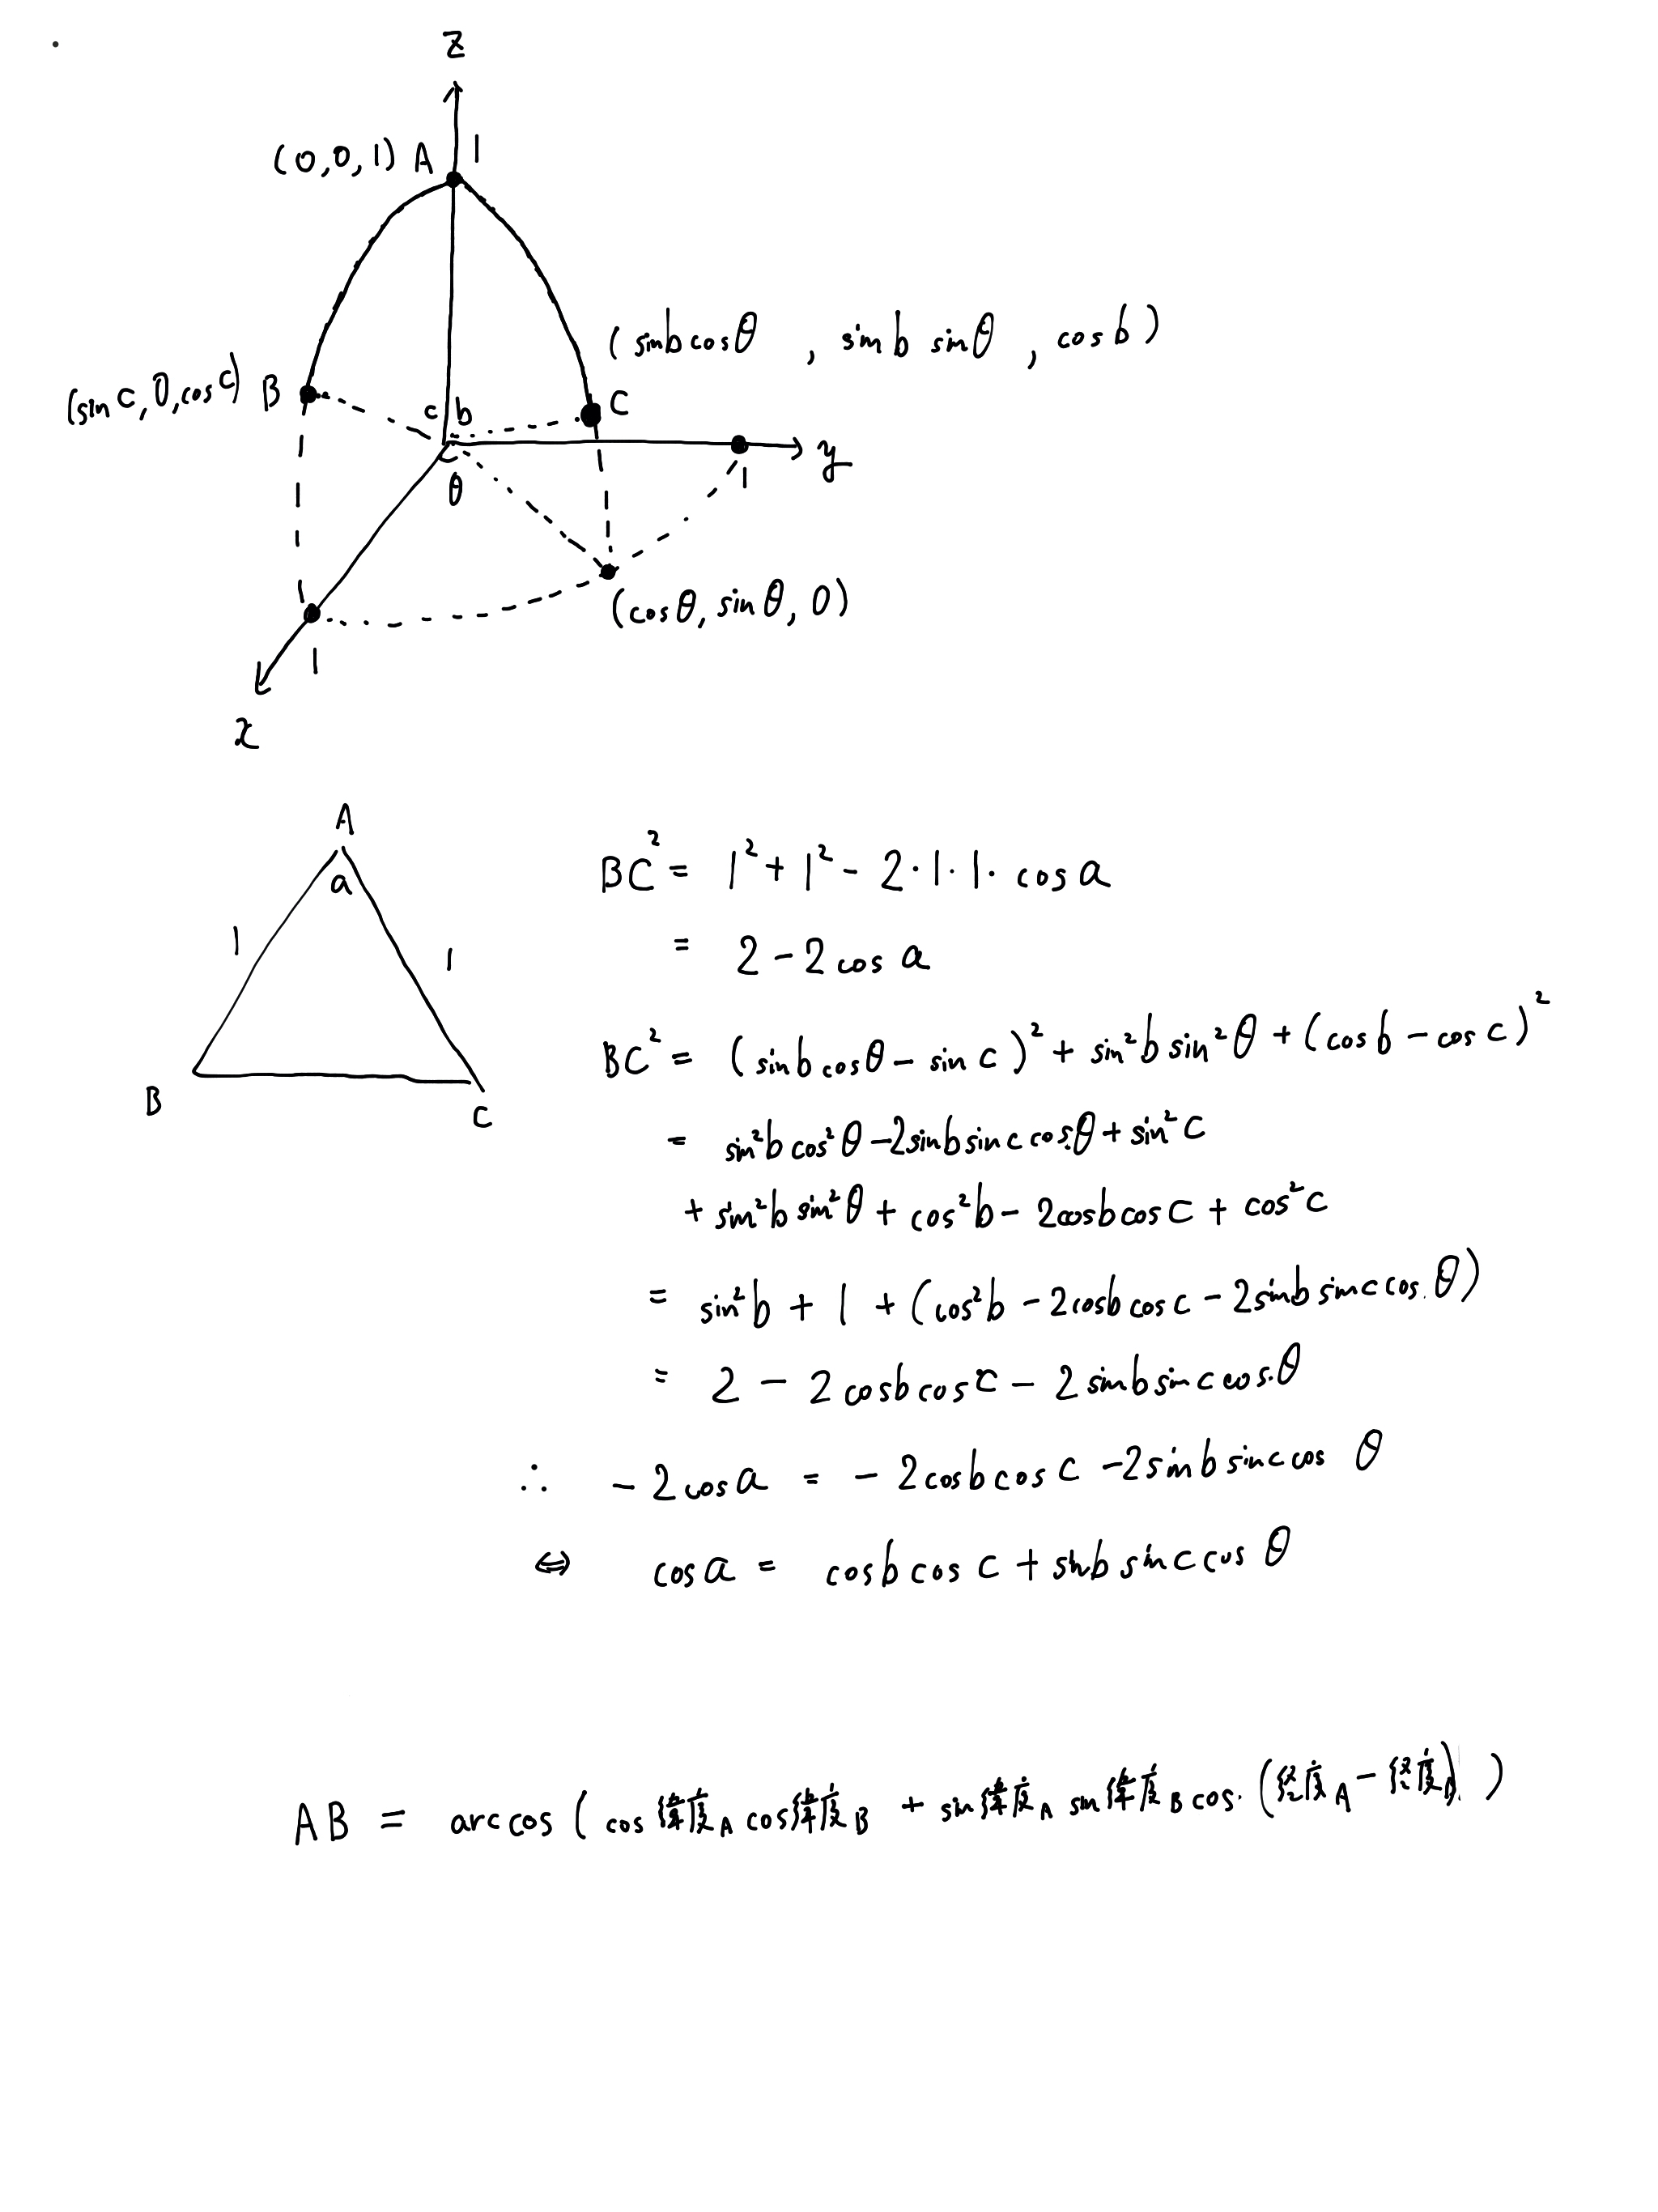 z
(0,0,1) A 1
(sin b cos θ , sin b sin θ , cos b)
(sin c, 0, cos c) B
c b
C
y
1
θ
(cos θ, sin θ, 0)
1
x
A
a
1 1
B C
BC² = 1² + 1² - 2・1・1・cos a
= 2 - 2 cos a
BC² = (sin b cos θ - sin c)² + sin² b sin² θ + (cos b - cos c)²
= sin² b cos² θ - 2 sin b sin c cos θ + sin² c
+ sin² b sin² θ + cos² b - 2 cos b cos c + cos² c
= sin² b + 1 + (cos² b - 2 cos b cos c - 2 sin b sin c cos θ)
= 2 - 2 cos b cos c - 2 sin b sin c cos θ
∴ -2 cos a = -2 cos b cos c - 2 sin b sin c cos θ
⇔ cos a = cos b cos c + sin b sin c cos θ
AB = arccos (cos 緯度A cos 緯度B + sin 緯度A sin 緯度B cos (経度A - 経度B))